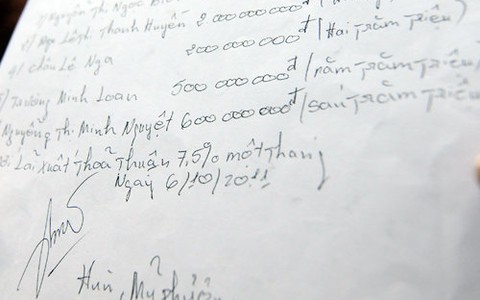 Nguyễn Thị Ngọc
Thanh Huyền 2 000 000 000đ
4/ Châu Lê Nga 200 000 000đ /Hai Trăm Triệu/
5/ Trương Minh Loan 500 000 000đ /năm Trăm Triệu/
Nguyễn Thị Minh Nguyệt 600 000 000đ /sáu Trăm Triệu
Lãi Xuất Thoả Thuận 7,5% một Tháng
Ngày 6/10/2011